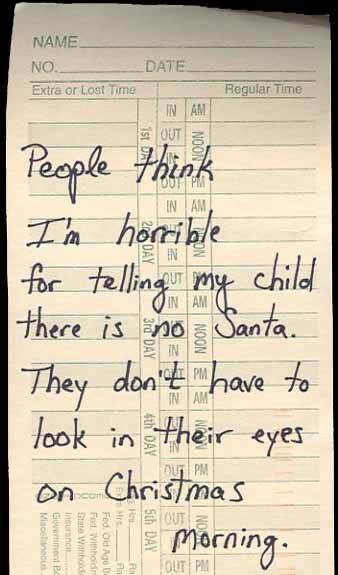 NAME
NO. DATE
Extra or Lost Time Regular Time
IN AM
1st DAY OUT NOON
IN
People think
OUT PM
IN AM
I'm horrible
2nd DAY
for telling my child
OUT PM
IN AM
there is no Santa.
3rd DAY NOON
IN
They don't have to
OUT PM
IN AM
look in their eyes
4th DAY OUT NOON
IN
OUT PM
on Christmas
IN AM
5th DAY OUT NOON
Morning.
IN
OUT PM
Hrs.
Extra Hrs.
Fed. Old Age
Fed. Withholding
State Withholding
Insurance
Government
Miscellaneous